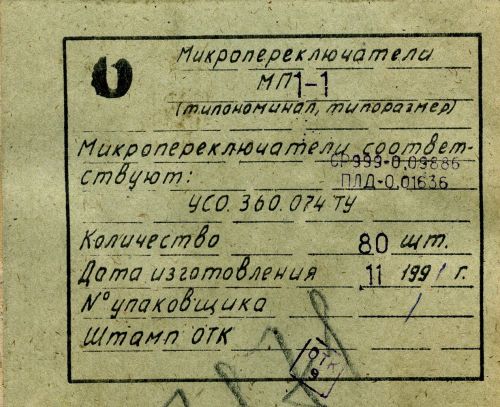 Микропереключатели
МП1-1
(типономинал, типоразмер)
Микропереключатели соответ-
СР999-0,09886
ствуют:
ПЛД-0,01636
УСО.360.074 ТУ
Количество 80 шт.
Дата изготовления 11 1991 г.
N° упаковщика
Штамп ОТК
ОТК
9